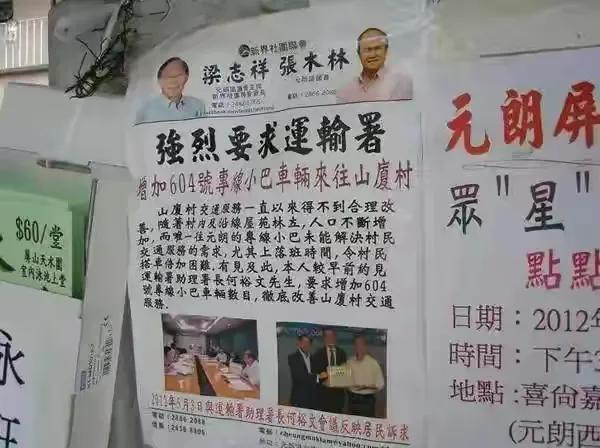 新界社團聯會
梁志祥 張木林
元朗區議會主席
新界社團聯會會長
元朗區議員
強烈要求運輸署
增加604號專線小巴車輛來往山廈村
山廈村交通服務一直以來得不到合理改
善，隨著村內及沿線屋苑林立，人口不斷增
加，而唯一往元朗的專線小巴未能解決村民
交通服務的需求，尤其上落班時間，令村民
搭車倍加困難，有見及此，本人較早前約見
運輸署助理署長何裕文先生，要求增加604
號專線小巴車輛數目，徹底改善山廈村交通
服務。
2012年5月3日與運輸署助理署長何裕文會議反映居民訴求
$60/堂
屏山天水圍
室內泳池上堂
泳
元朗屏
眾"星"
點點
日期：2012年
時間：下午3
地點：喜尚嘉
(元朗西